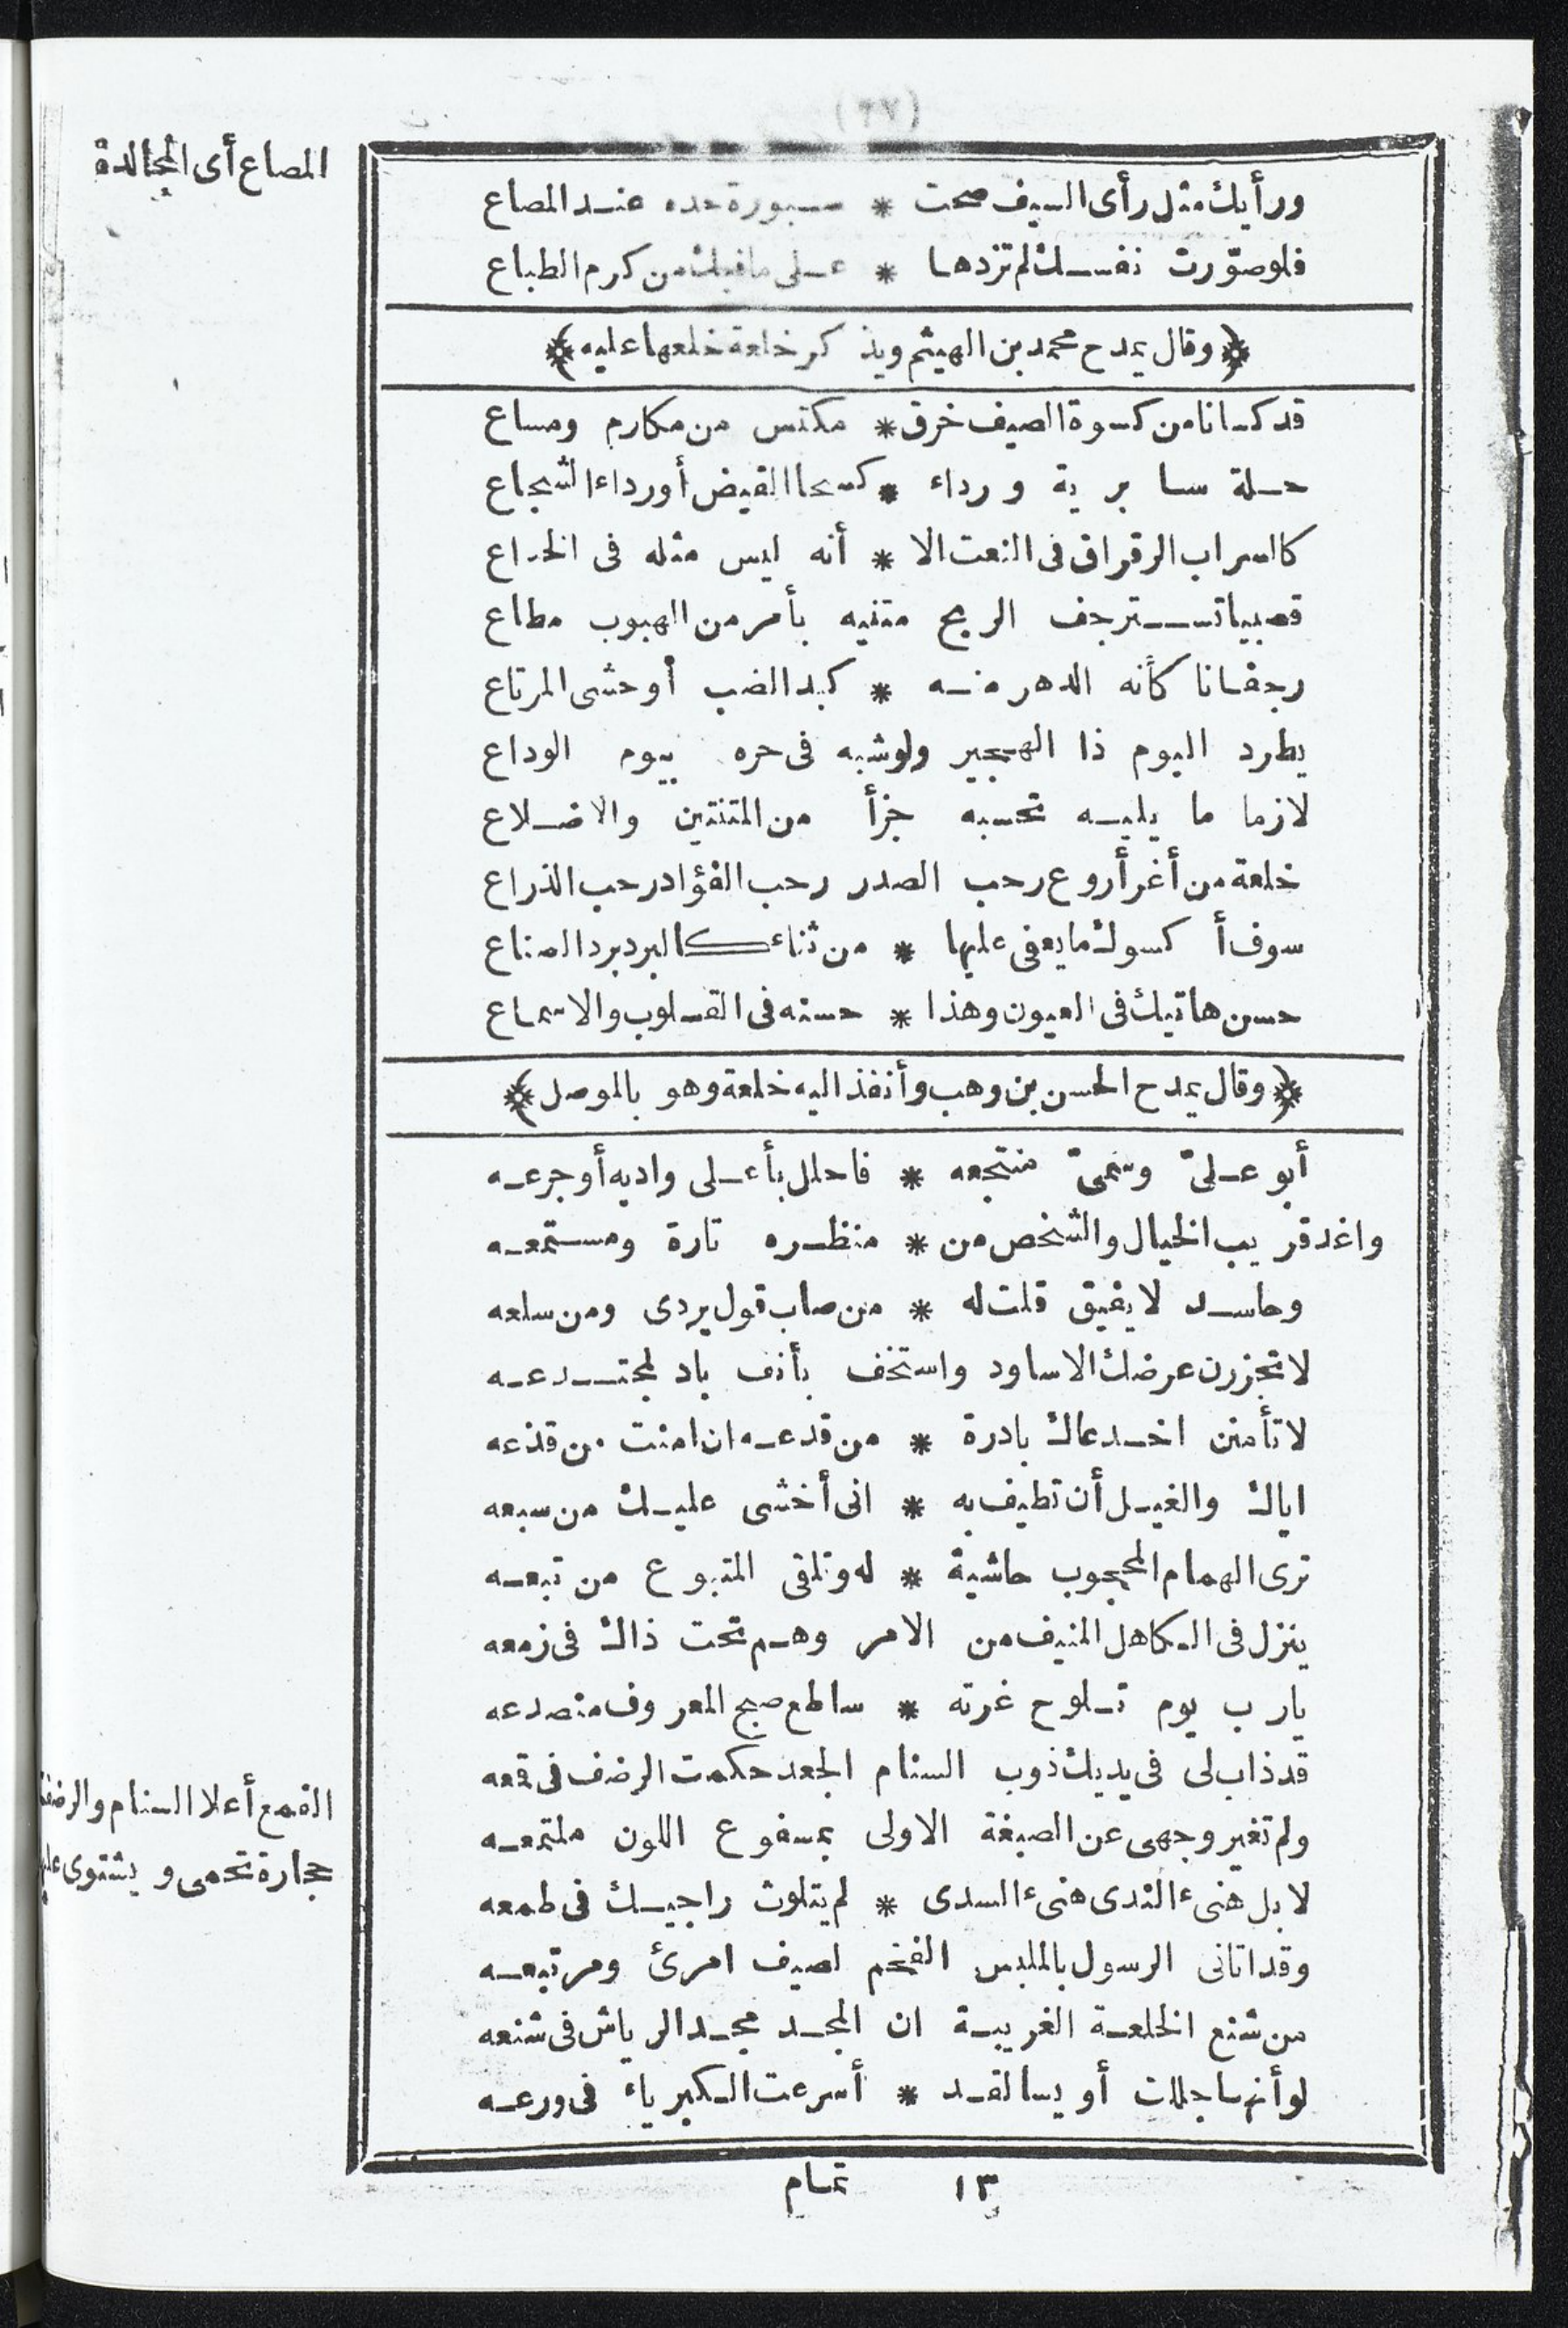 (٩٧)
المصاع أى المجالدة
ورأيك مثل رأى السيف صحت * مشورة حده عند المصاع
فلو صوّرت نفسك لم تزدها * على ما فيك من كرم الطباع
﴿وقال يمدح محمد بن الهيثم ويذكر خلعة خلعها عليه﴾
قد كسانا من كسوة الصيف خرق * مكتس من مكارم ومساع
حلة سابرية ورداء * كسحا القيض أو رداء الشجاع
كالسراب الرقراق فى النعت الا * أنه ليس مثله فى الخداع
قصبيا تسترجف الريح متنيه بأمر من الهبوب مطاع
رجفانا كأنه الدهر منه * كبد الضب أو حشى المرتاع
يطرد اليوم ذا الهجير ولو شبه فى حره بيوم الوداع
لازما ما يليه تحسبه جزأ من المتنتين والاضلاع
خلعة من أغر أروع رحب الصدر رحب الفؤاد رحب الذراع
سوف أكسوك ما يعفى عليها * من ثناء كالبرد برد الصناع
حسن هاتيك فى العيون وهذا * حسنه فى القلوب والاسماع
﴿وقال يمدح الحسن بن وهب وأنفذ اليه خلعة وهو بالموصل﴾
أبو علىّ وسمىّ منتجعه * فاحلل بأعلى واديه أو جرعه
واغد قريب الخيال والشخص من * منظره تارة ومستمعه
وحاسد لا يفيق قلت له * من صاب قول يردى ومن سلعه
لا تجزرن عرضك الاساود واستخف بأنف باد لمجتدعه
لا تأمنن اخدعاك بادرة * من قدعه ان امنت من قذعه
اياك والغيل أن تطيف به * انى أخشى عليك من سبعه
ترى الهمام المحجوب حاشية * له وتلقى المتبوع من تبعه
ينزل فى الكاهل المنيف من الامر وهم تحت ذاك فى زمعه
يارب يوم تلوح غرته * ساطع صبح المعروف منصدعه
قد ذاب لى فى يديك ذوب السنام الجعد حكمت الرضف فى قمعه
ولم تغير وجهى عن الصبغة الاولى بمسفوع اللون ملتمعه
القمع أعلا السنام والرضف
حجارة تحمى ويشتوى عليها
لا بل هنىء الندى هنىء السدى * لم يتلوث راجيك فى طمعه
وقد اتانى الرسول بالملبس الفخم لصيف امرئ ومرتبعه
من شنع الخلعة الغريبة ان المجد مجد الرياش فى شنعه
لو أنها جللت أويسا لقد * أسرعت الكبرياء فى ورعه
١٣ تمام